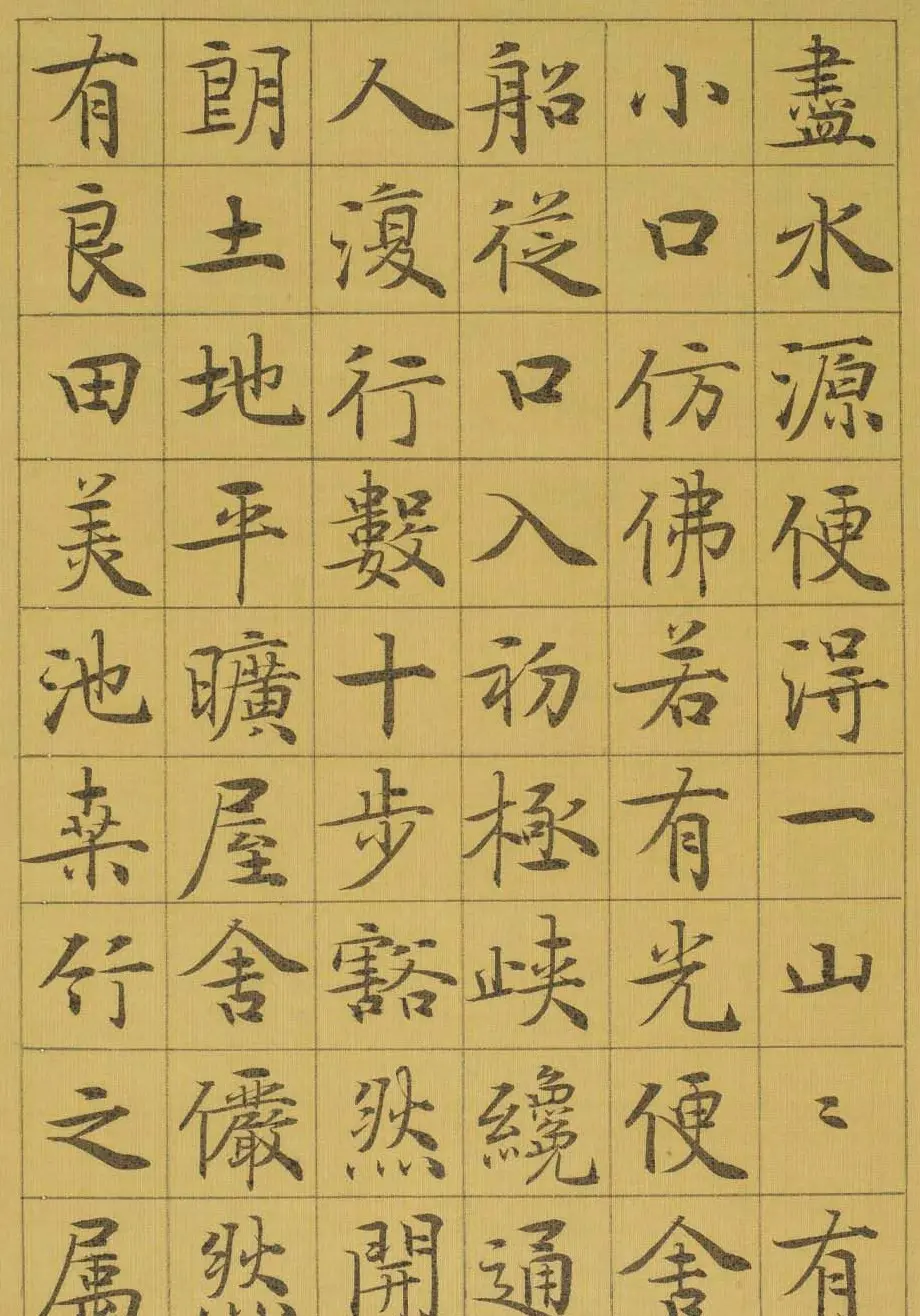 盡水源便得一山〻有
小口仿佛若有光便舍
船從口入初極峽纔通
人復行數十步豁然開
朗土地平曠屋舍儼然
有良田美池桑竹之属